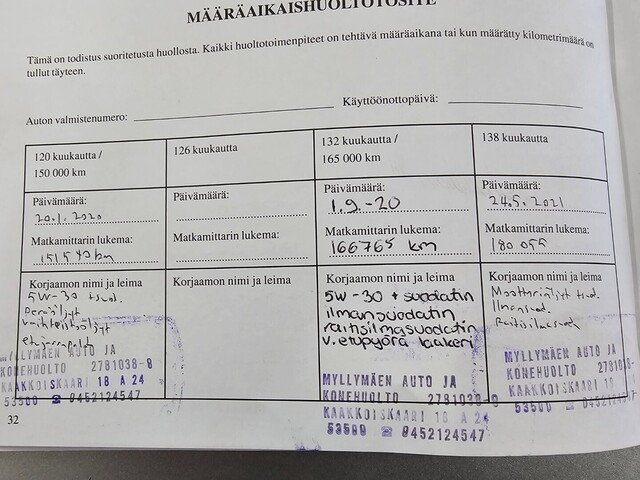 MÄÄRÄAIKAISHUOLTOTOSITE
Tämä on todistus suoritetusta huollosta. Kaikki huoltotoimenpiteet on tehtävä määräaikana tai kun määrätty kilometrimäärä on
tullut täyteen.
Auton valmistenumero:
Käyttöönottopäivä:
120 kuukautta /
150 000 km
126 kuukautta
132 kuukautta /
165 000 km
138 kuukautta
Päivämäärä:
20.1.2020
Päivämäärä:
Päivämäärä:
1.9-20
Päivämäärä:
24.5.2021
Matkamittarin lukema:
151540 km
Matkamittarin lukema:
Matkamittarin lukema:
166765 km
Matkamittarin lukema:
180 055
Korjaamon nimi ja leima
5W-30 + suod.
Peräöljyt
vaihteistoöljyt
MYLLYMÄEN AUTO JA
KONEHUOLTO 2781038-8
KAAKKOISKAARI 18 A 24
53500 ☎ 0452124547
Korjaamon nimi ja leima
Korjaamon nimi ja leima
5W-30 + suodatin
ilmansuodatin
raitisilmasuodatin
v. etupyörä laakeri
MYLLYMÄEN AUTO JA
KONEHUOLTO 2781038-8
KAAKKOISKAARI 18 A 24
53500 ☎ 0452124547
Korjaamon nimi ja leima
Moottoriöljyt + suod.
Ilmansuod.
Raitisilmasuod
MYLLYMÄEN AUTO JA
KONEHUOLTO 2781038-8
KAAKKOISKAARI 18 A 24
53500 ☎ 0452124547
32